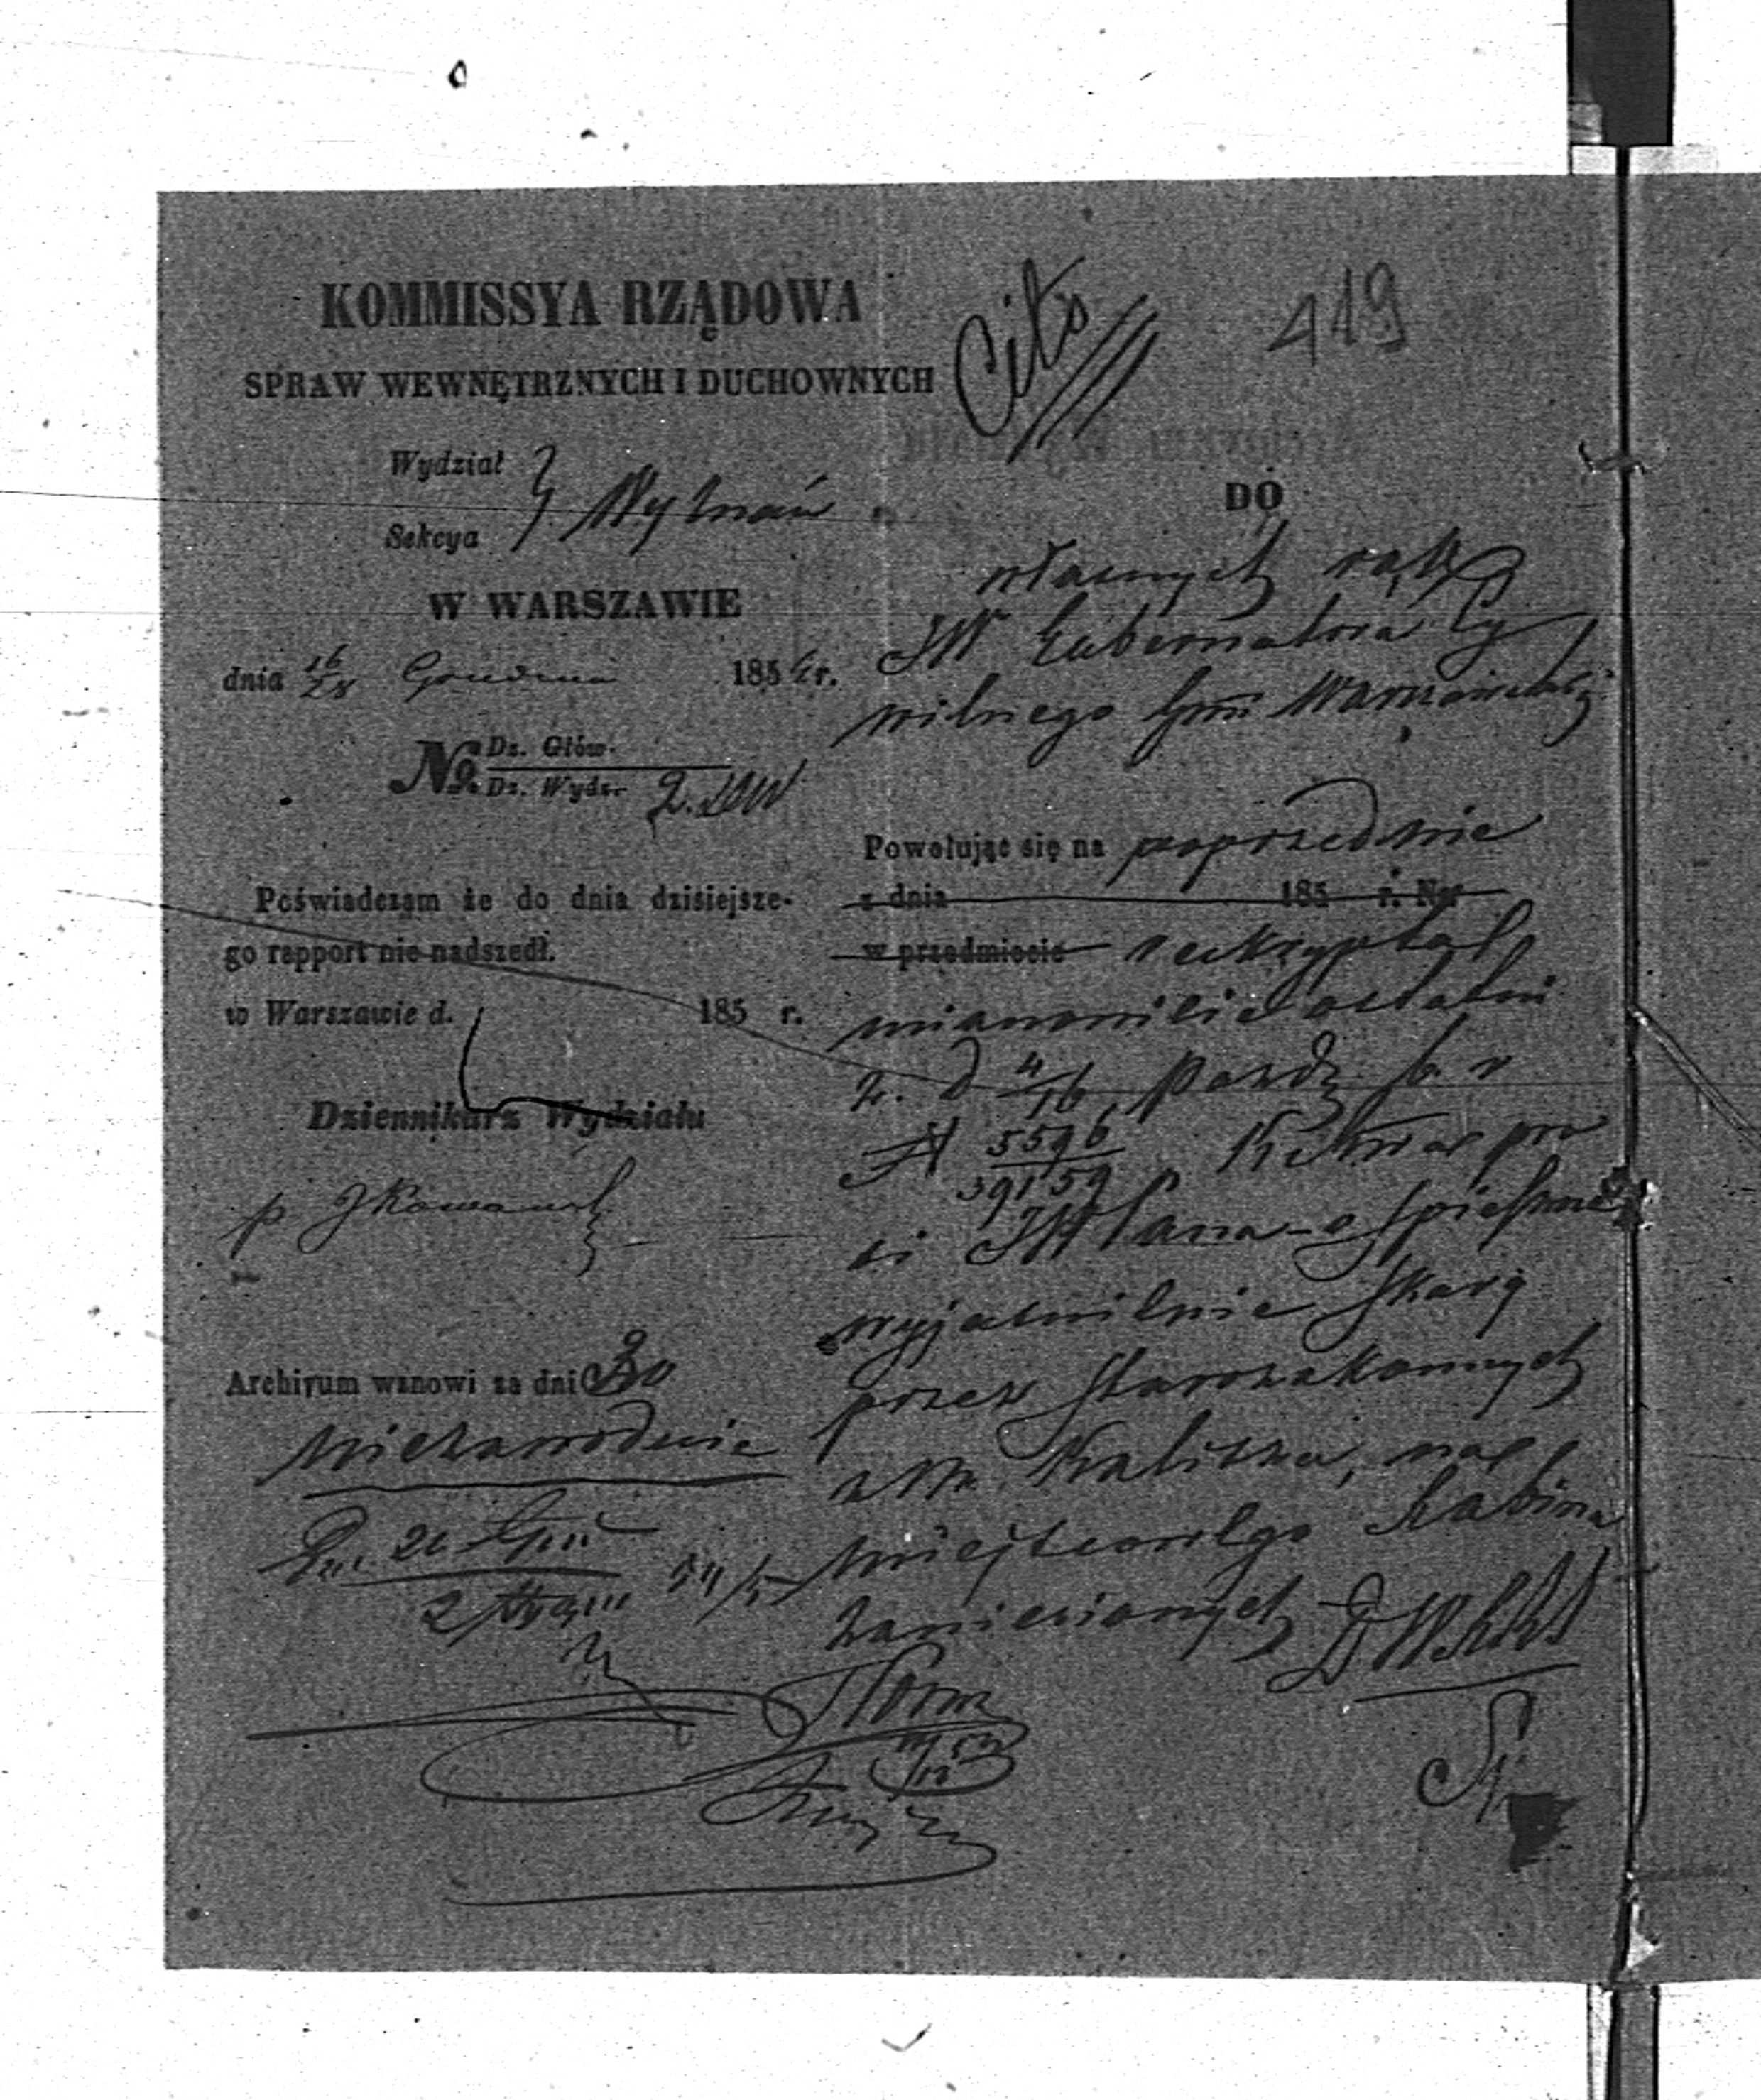 KOMMISSYA RZĄDOWA
SPRAW WEWNĘTRZNYCH I DUCHOWNYCH
Cito
419
Wydział
Sekcya
Wyznań
W WARSZAWIE
dnia 16/28 Grudnia 1854 r.
No Dz. Głów.
Dz. Wydz.
Poświadczam że do dnia dzisiejsze-
go rapport nie nadszedł.
w Warszawie d. 185 r.
Dziennikarz Wydziału
Archivum wznowi za dni 30
niezawodnie
DO
własnych rąk
JW Gubernatora Cy
wilnego Gnii Warszawskiej
Powołując się na poprzednie
z dnia 185 r. Nr
w przedmiocie reskrypta
mianowicie ostatni
z d 4/16 Paźdz b r
N 5596/39159 Kom pro
si JW Pana o spieszne
wyjaśnienie skarg
przez Starozakonnych
z M. Kalisza, na
miejscowego Rabina
zaniesionych